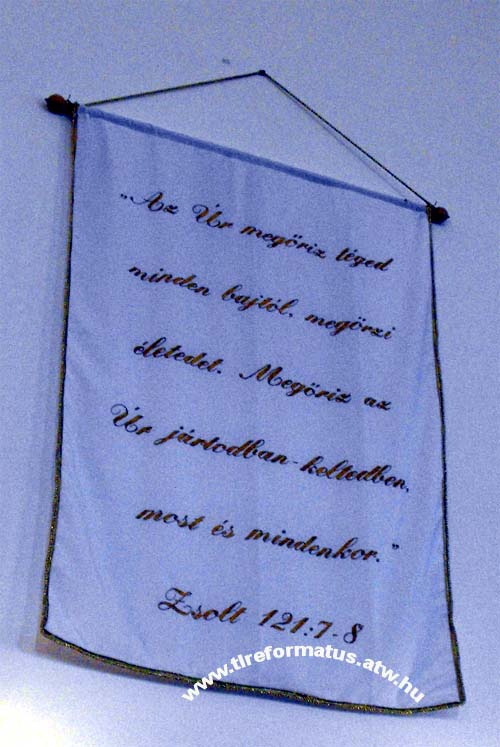 „Az Úr megőriz téged
minden bajtól, megőrzi
életedet. Megőriz az
Úr jártodban-keltedben,
most és mindenkor.”
Zsolt 121:7-8
www.tlreformatus.atw.hu